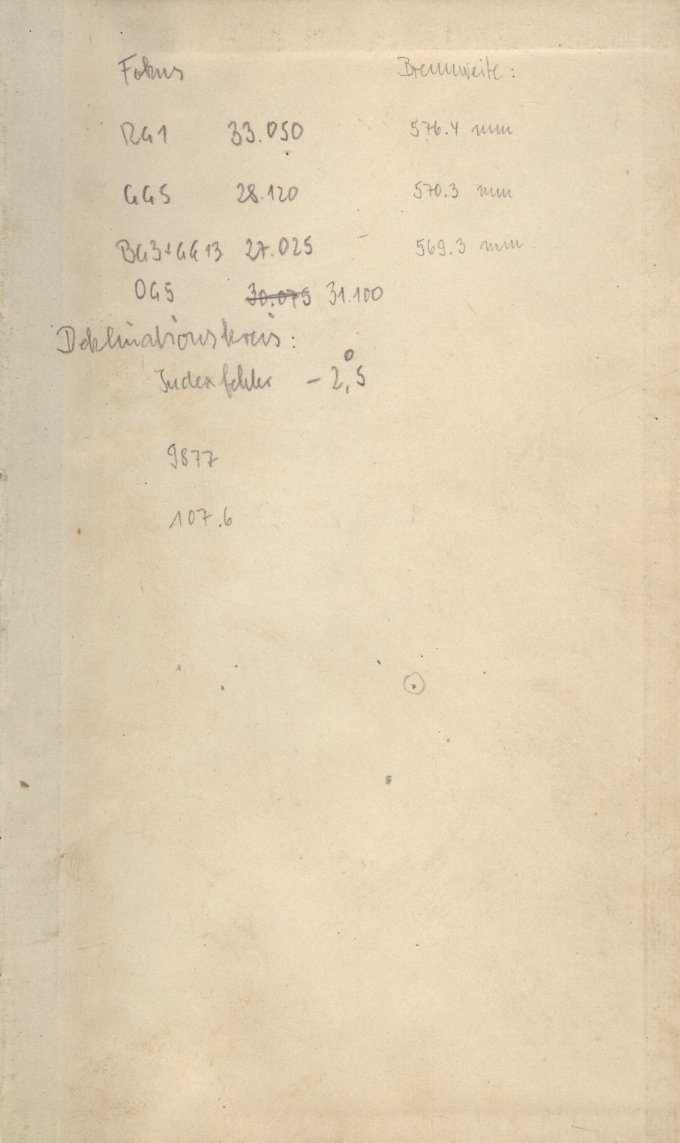 Fokus Brennweite:
RG1 33.050 576.4 mm
GG5 28.120 570.3 mm
BG3+GG13 27.025 569.3 mm
OG5 30.075 31.100
Deklinationskreis:
Indexfehler - 2°,5
9877
107.6